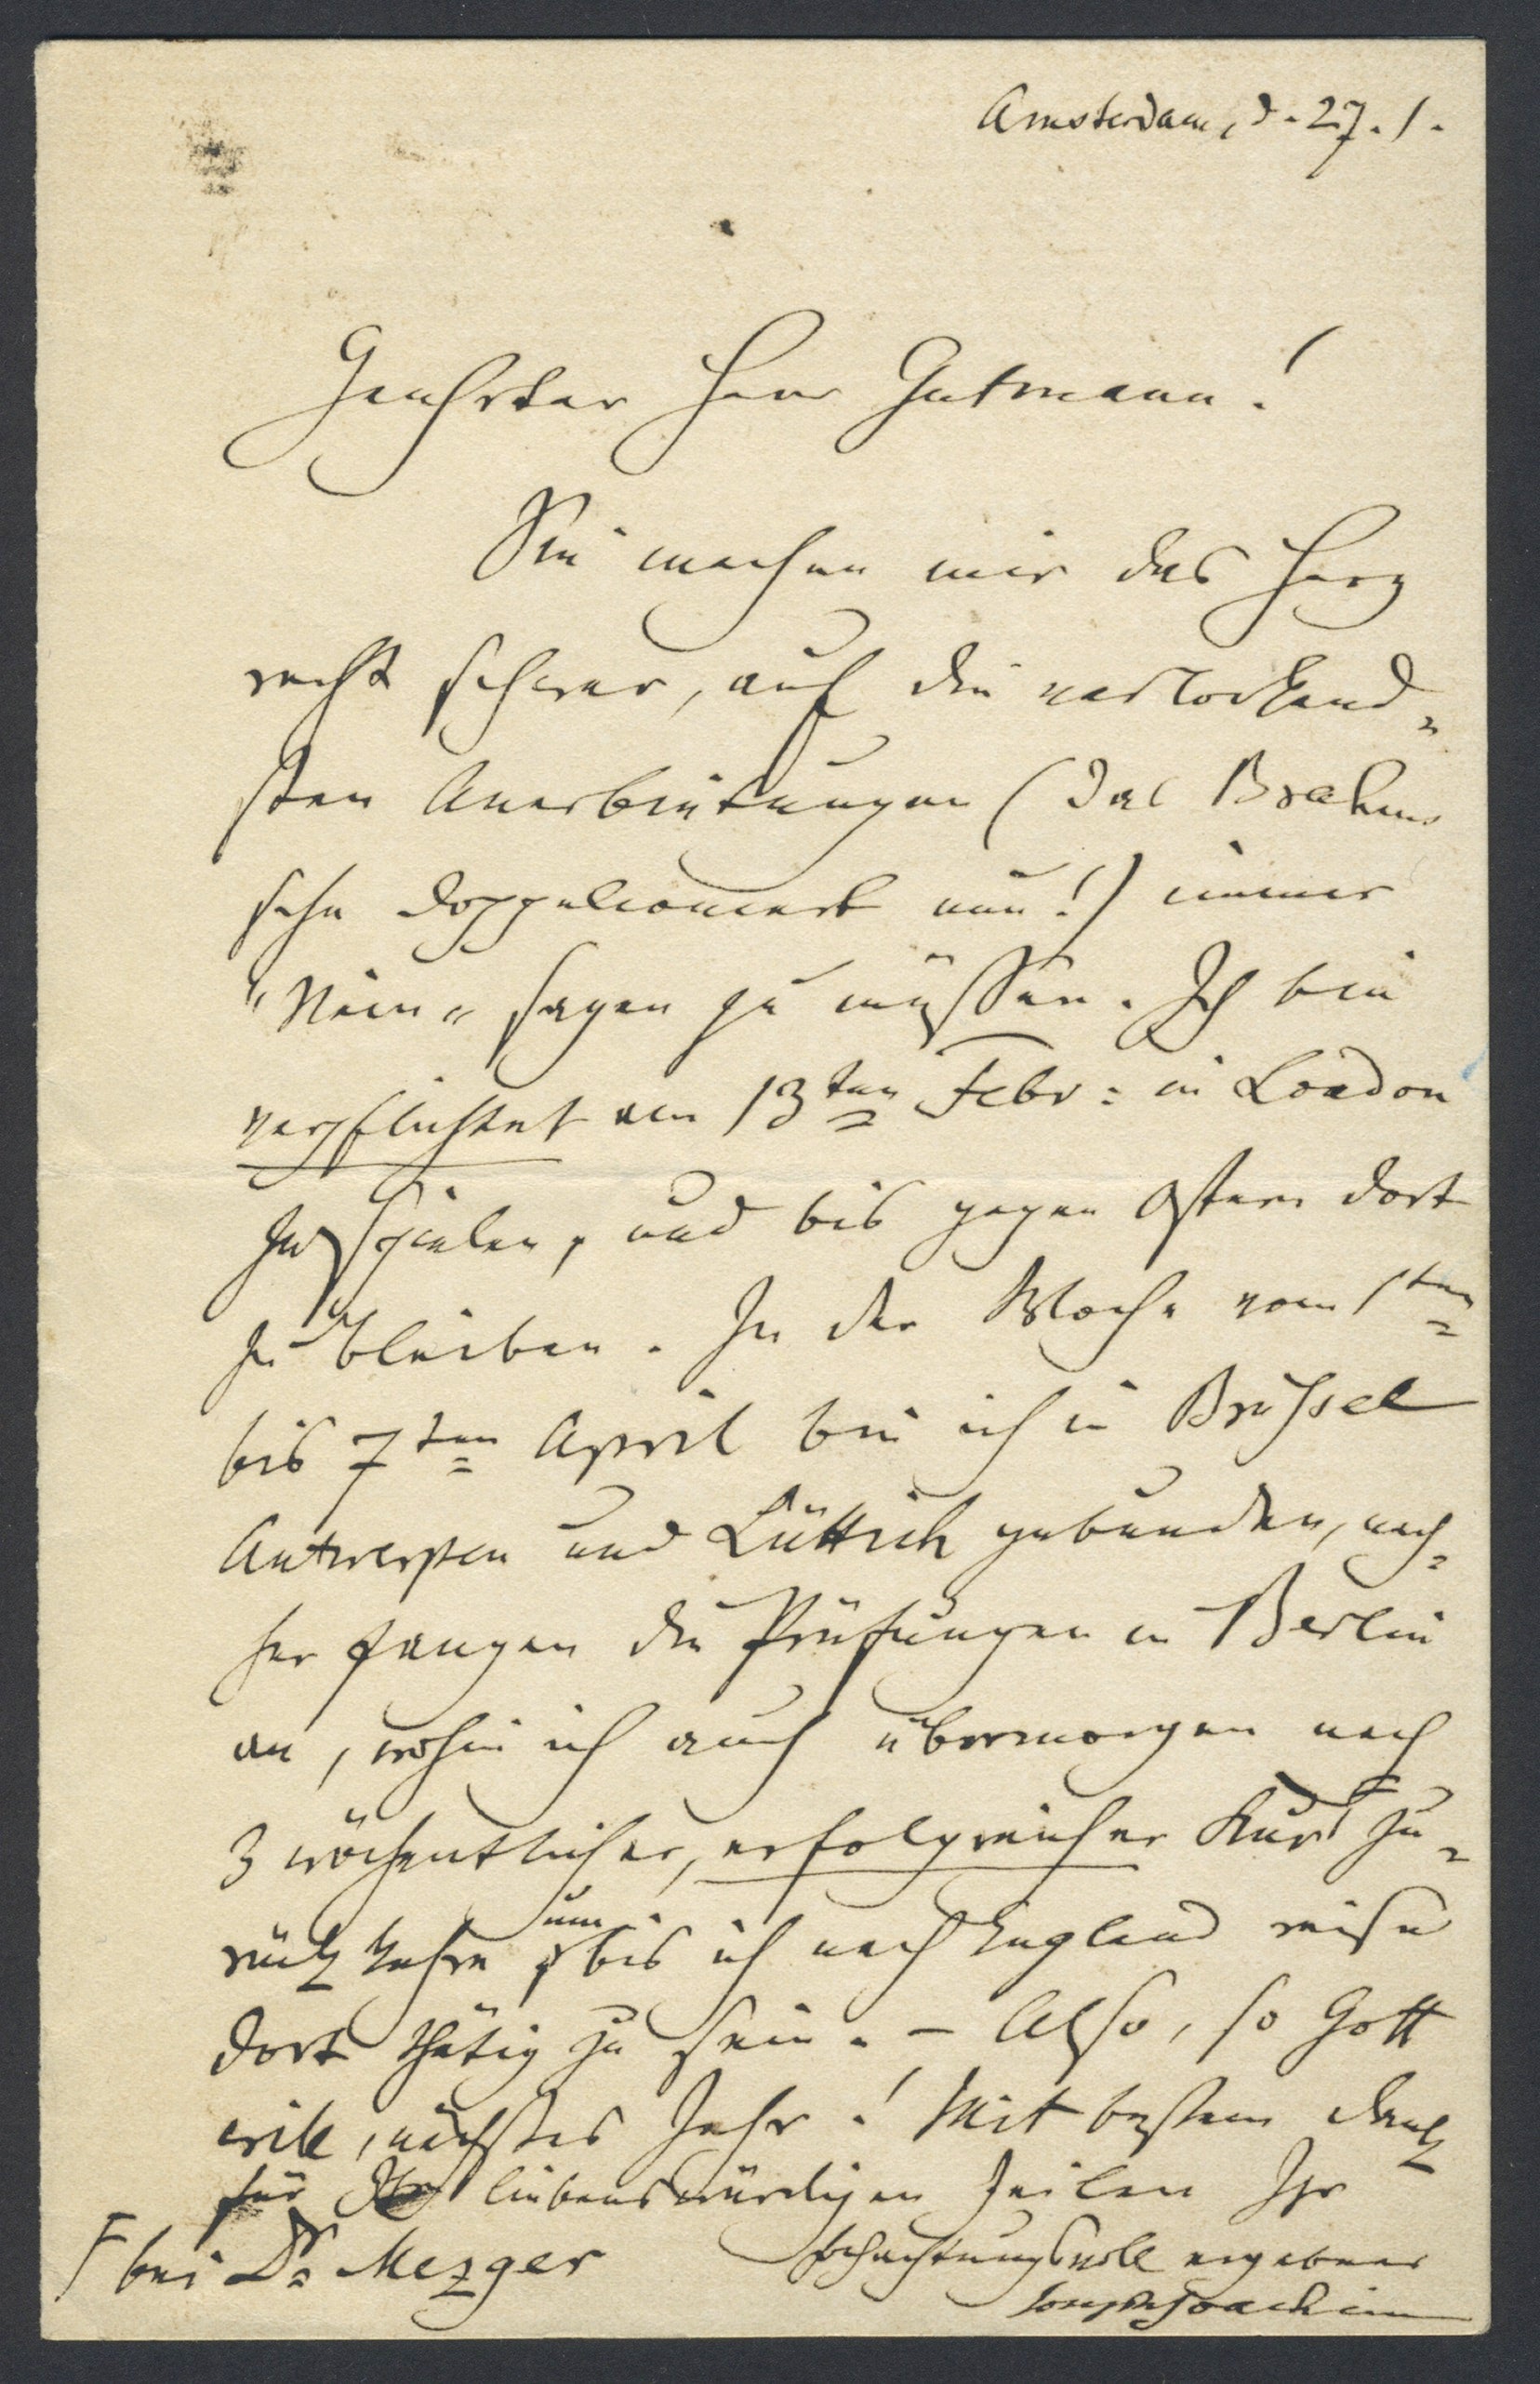 Amsterdam, d. 27. 1.
Geehrter Herr Gutmann!
Sie machen mir das Herz
recht schwer, auf die verlockend=
sten Anerbietungen (das Brahms
sche Doppelconcert nun!) immer
"Nein" sagen zu müssen. Ich bin
verpflichtet am 13ten Febr: in London
zu spielen, und bis gegen Ostern dort
zu bleiben. In der Woche vom 1ten
bis 7ten April bin ich in Brüssel
Antwerpen und Lüttich gebunden, nach=
her fangen die Prüfungen in Berlin
an, wohin ich auch übermorgen nach
3 wöchentlicher, erfolgreicher Kur F zu=
rückkehre bis ich nach England reise
um
dort thätig zu sein. – Also, so Gott
will, nächstes Jahr! Mit bestem Dank
für liebenswürdigen Zeilen Ihr
hochachtungsvoll ergebener
Joseph Joachim
F bei Dr Mezger